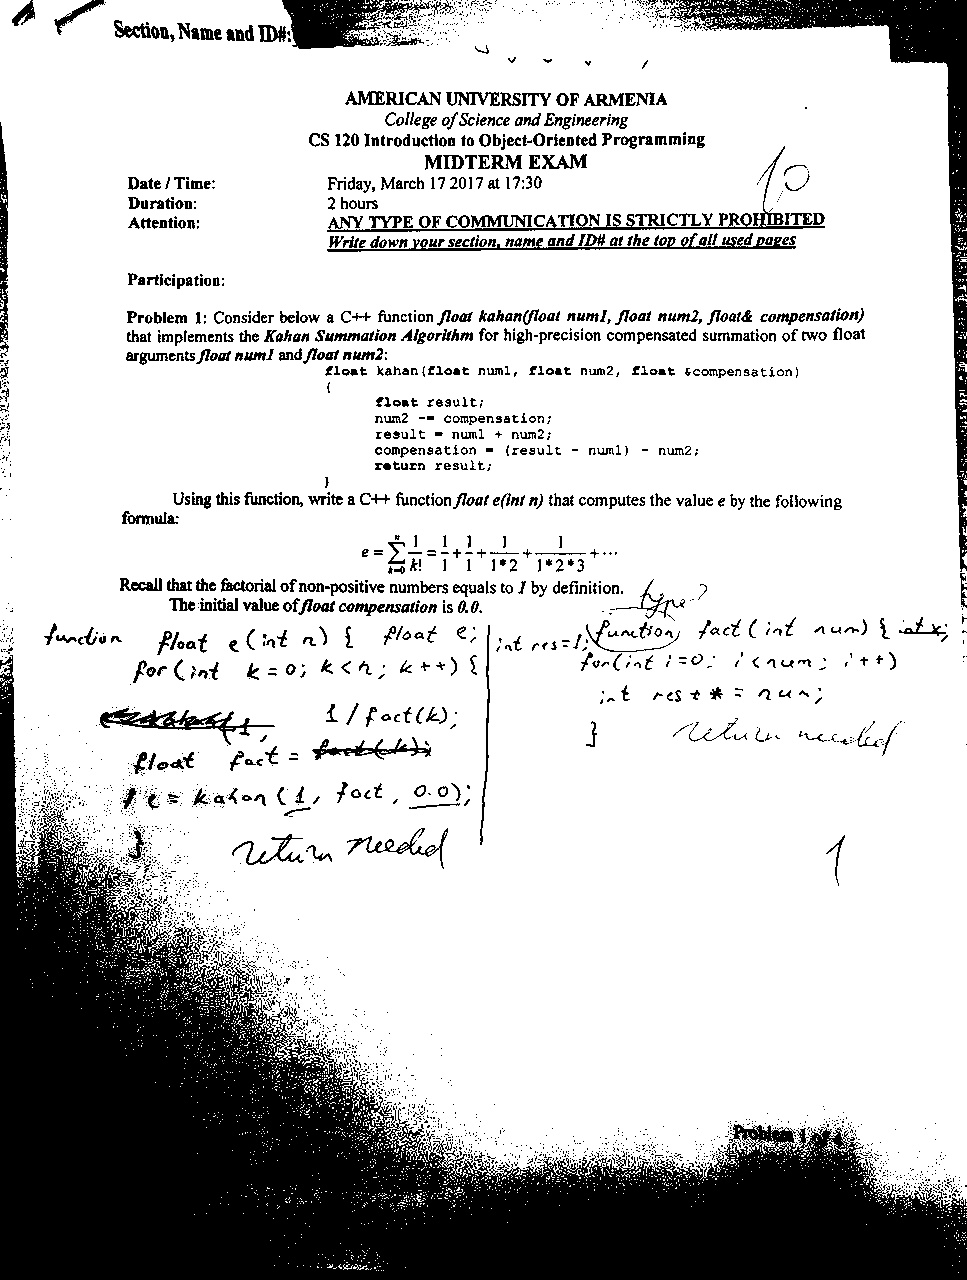 Section, Name and ID#:
AMERICAN UNIVERSITY OF ARMENIA
College of Science and Engineering
CS 120 Introduction to Object-Oriented Programming
MIDTERM EXAM
Date / Time: Friday, March 17 2017 at 17:30
Duration: 2 hours
Attention: ANY TYPE OF COMMUNICATION IS STRICTLY PROHIBITED
Write down your section, name and ID# at the top of all used pages
10
Participation:
Problem 1: Consider below a C++ function float kahan(float num1, float num2, float& compensation)
that implements the Kahan Summation Algorithm for high-precision compensated summation of two float
arguments float num1 and float num2:
float kahan(float num1, float num2, float &compensation)
{
float result;
num2 -= compensation;
result = num1 + num2;
compensation = (result - num1) - num2;
return result;
}
Using this function, write a C++ function float e(int n) that computes the value e by the following
formula:
e = ∑ n k=0 1/k! = 1/1 + 1/1 + 1/1*2 + 1/1*2*3 + ···
Recall that the factorial of non-positive numbers equals to 1 by definition.
The initial value of float compensation is 0.0.
function float e(int n) { float e;
for(int k=0; k<n; k++) {
1/fact(k);
float fact = fact(k);
e = kahan(1, fact, 0.0);
}
return needed
type?
int res=1; function fact(int num) { int x;
for(int i=0; i<num; i++)
int res * = num;
}
return needed
1
Problem 1 of 4